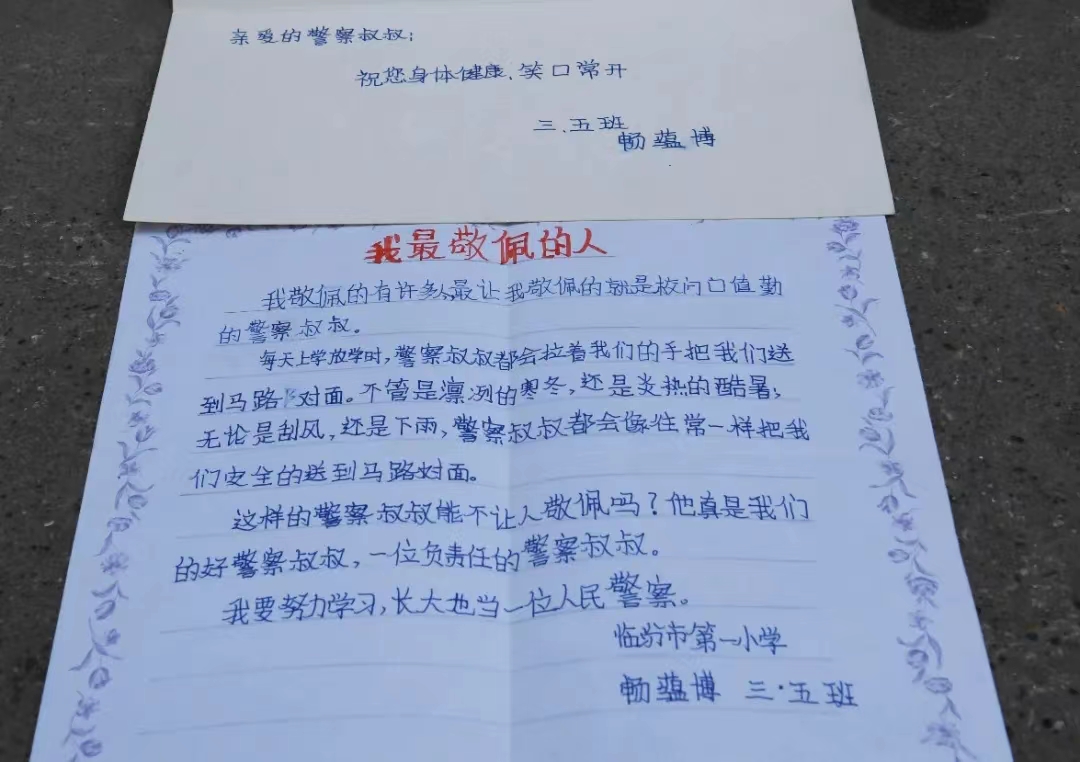 亲爱的警察叔叔：
祝您身体健康、笑口常开
三.五班
畅蕴博
我最敬佩的人
我敬佩的有许多人最让我敬佩的就是校门口值勤
的警察叔叔。
每天上学放学时，警察叔叔都会拉着我们的手把我们送
到马路对面。不管是凛冽的寒冬，还是炎热的酷暑；
无论是刮风，还是下雨，警察叔叔都会像往常一样把我
们安全的送到马路对面。
这样的警察叔叔能不让人敬佩吗？他真是我们
的好警察叔叔，一位负责任的警察叔叔。
我要努力学习，长大也当一位人民警察。
临汾市第一小学
畅蕴博 三·五班